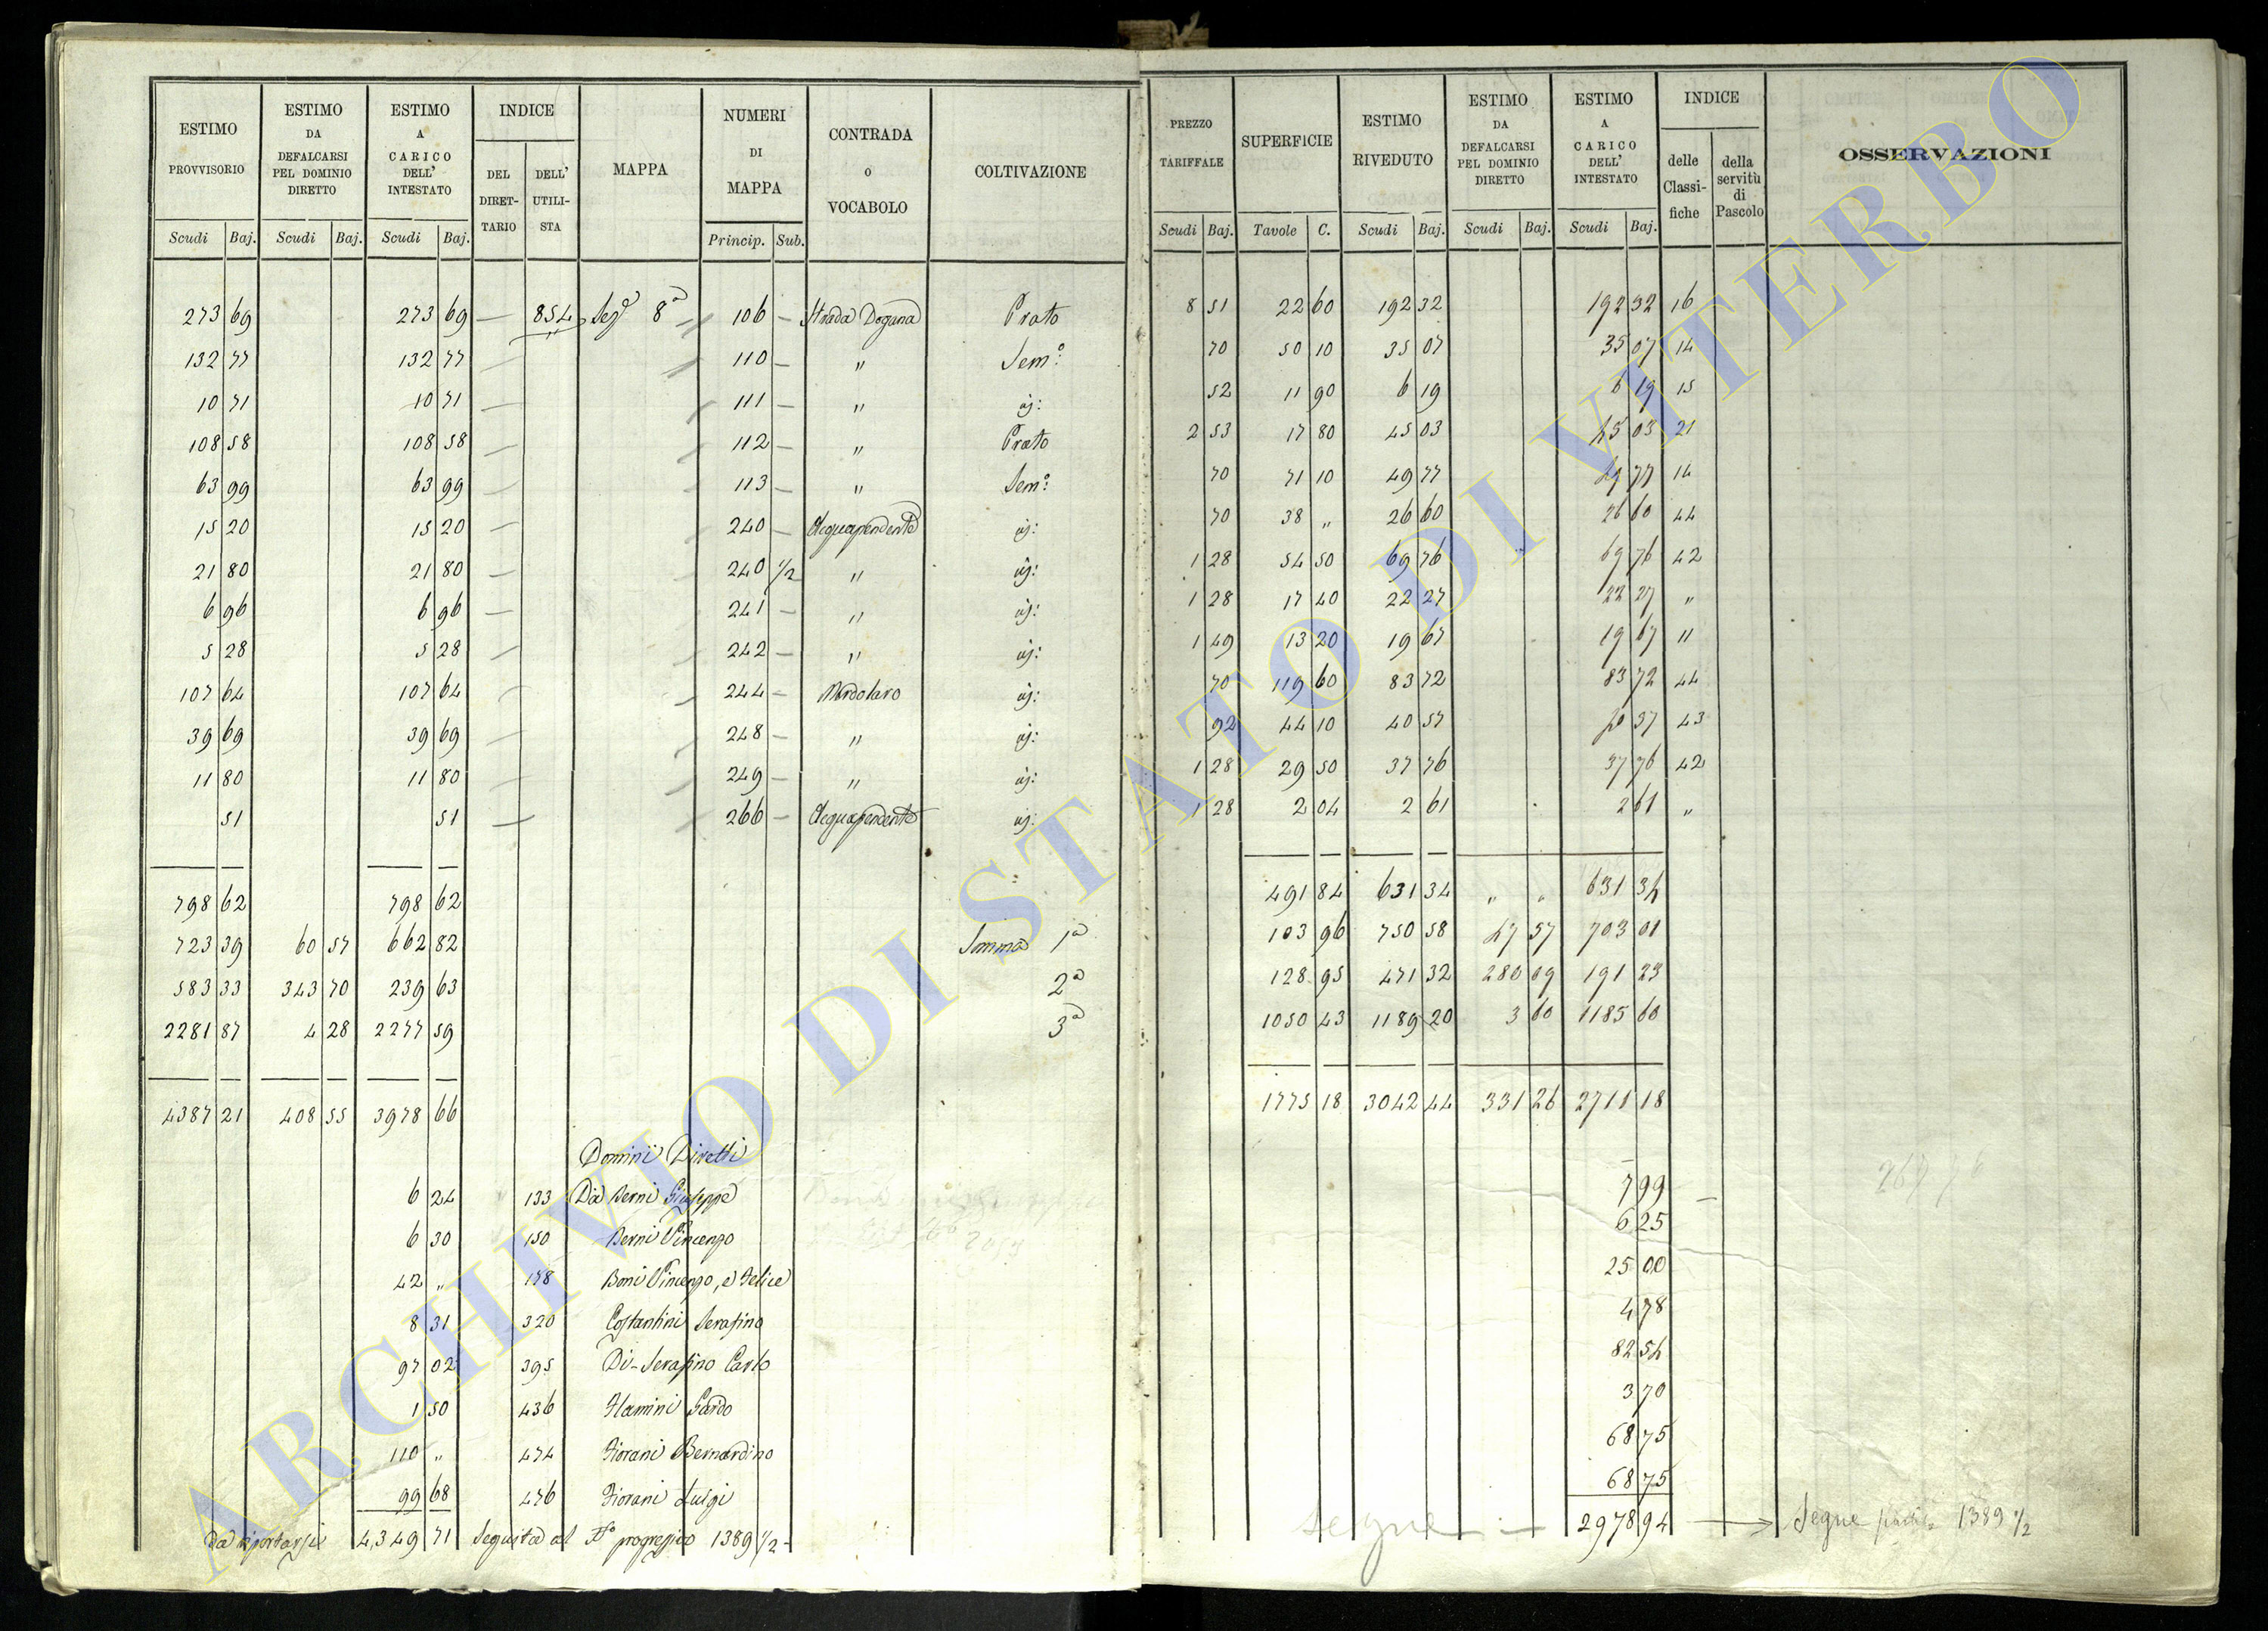 ESTIMO PROVVISORIO | ESTIMO DA DEFALCARSI PEL DOMINIO DIRETTO | ESTIMO A CARICO DELL' INTESTATO | INDICE DEL DIRETTARIO | DELL' UTILISTA | MAPPA | NUMERI DI MAPPA | CONTRADA o VOCABOLO | COLTIVAZIONE | PREZZO TARIFFALE | SUPERFICIE | ESTIMO RIVEDUTO | ESTIMO DA DEFALCARSI PEL DOMINIO DIRETTO | ESTIMO A CARICO DELL' INTESTATO | INDICE delle Classifiche | della servitù di Pascolo | OSSERVAZIONI
Scudi Baj. | Scudi Baj. | Scudi Baj. | Princip. Sub. | Scudi Baj. | Tavole C. | Scudi Baj. | Scudi Baj. | Scudi Baj.
273 69 | 273 69 | — | 854 | Seg.e 8a | 106 — | Strada Dogana | Prato | 8 51 | 22 60 | 192 32 | 192 32 | 16
132 77 | 132 77 | — | 110 — | " | Sem: | 70 | 50 10 | 35 07 | 35 07 | 14
10 71 | 10 71 | — | 111 — | " | id: | 52 | 11 90 | 6 19 | 6 19 | 15
108 58 | 108 58 | — | 112 — | " | Prato | 2 53 | 17 80 | 45 03 | 45 03 | 21
63 99 | 63 99 | — | 113 — | " | Sem: | 70 | 71 10 | 49 77 | 49 77 | 14
15 20 | 15 20 | — | 240 — | Acquapendente | id: | 70 | 38 " | 26 60 | 26 60 | 44
21 80 | 21 80 | — | 240 1/2 | " | id: | 1 28 | 54 50 | 69 76 | 69 76 | 42
6 96 | 6 96 | — | 241 — | " | id: | 1 28 | 17 40 | 22 27 | 22 27 | "
5 28 | 5 28 | — | 242 — | " | id: | 1 49 | 13 20 | 19 67 | 19 67 | 11
107 64 | 107 64 | — | 244 — | id: | 70 | 119 60 | 83 72 | 83 72 | 44
39 69 | 39 69 | — | 248 — | " | id: | 92 | 44 10 | 40 57 | 40 57 | 43
11 80 | 11 80 | — | 249 — | " | id: | 1 28 | 29 50 | 37 76 | 37 76 | 42
51 | 51 | — | 266 — | Acquapendente | id: | 1 28 | 2 04 | 2 61 | 2 61 | "
798 62 | 798 62 | 491 84 | 631 34 | " " | 631 34
723 39 | 60 57 | 662 82 | Somma 1a | 103 96 | 750 58 | 47 57 | 703 01
583 33 | 343 70 | 239 63 | 2a | 128 95 | 471 32 | 280 09 | 191 23
2281 87 | 4 28 | 2277 59 | 3a | 1050 43 | 1189 20 | 3 60 | 1185 60
4387 21 | 408 55 | 3978 66 | 1775 18 | 3042 44 | 331 26 | 2711 18
Dominii Diretti
6 24 | 133 | Da Berni Giuseppe | 7 99 —
6 30 | 150 | Berni Vincenzo | 6 25
42 " | 178 | Boni Vincenzo, e Felice | 25 00
8 31 | 320 | Costantini Serafino | 4 78
97 02 | 395 | Di-Serafino Carlo | 82 54
1 50 | 436 | Flamini | 3 70
110 " | 474 | Fiorani Bernardino | 68 75
99 68 | 476 | Fiorani Luigi | 68 75
Da riportarsi | 4,349 71 | Seguita al N° progressivo 1389 1/2 — | segue — | 2978 94 | Segue partita 1389 1/2
ARCHIVIO DI STATO DI VITERBO